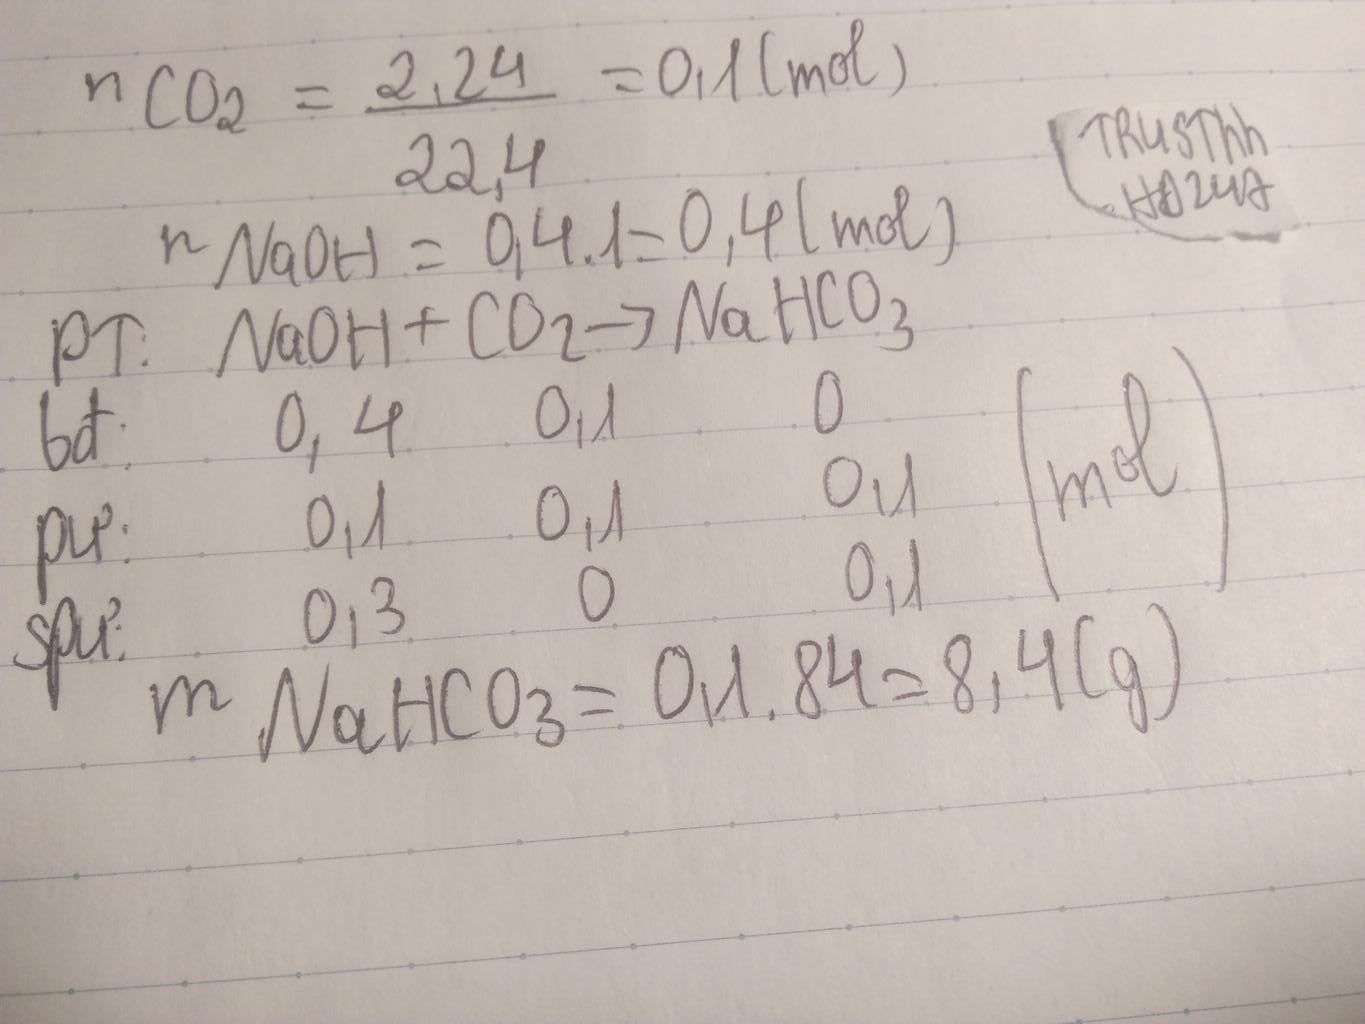 nCO2 = 2,24 / 22,4 = 0,1 (mol)
TRUSThh
HA247
nNaOH = 0,4.1 = 0,4 (mol)
PT: NaOH + CO2 → NaHCO3
bđ: 0,4 0,1 0
pứ: 0,1 0,1 0,1 (mol)
spứ: 0,3 0 0,1
mNaHCO3 = 0,1.84 = 8,4 (g)